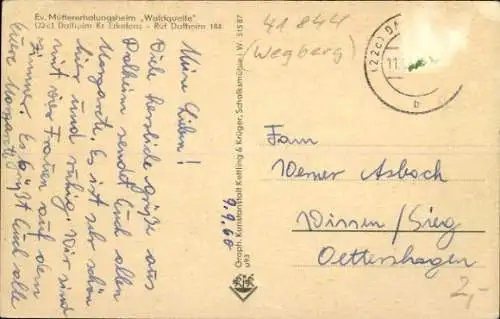 Ev. Müttererholungsheim „Waldquelle"
(22c) Dalheim Kr. Erkelenz - Ruf Dalheim 184
9.9.60
Meine Lieben!
Viele herzliche Grüße aus
Dalheim sendet Euch allen
Margarete. Es ist sehr schön
hier und ruhig. Wir sind
mit vier Frauen auf dem
Zimmer. Es grüßt Euch alle
Eure Margarete
Graph. Kunstanstalt Kettling & Krüger, Schalksmühle, W. 51587
41 844
(Wegberg)
(22c)
11.
b
Fam
Werner Asbach
Wissen/Sieg
Oettershagen
2,-